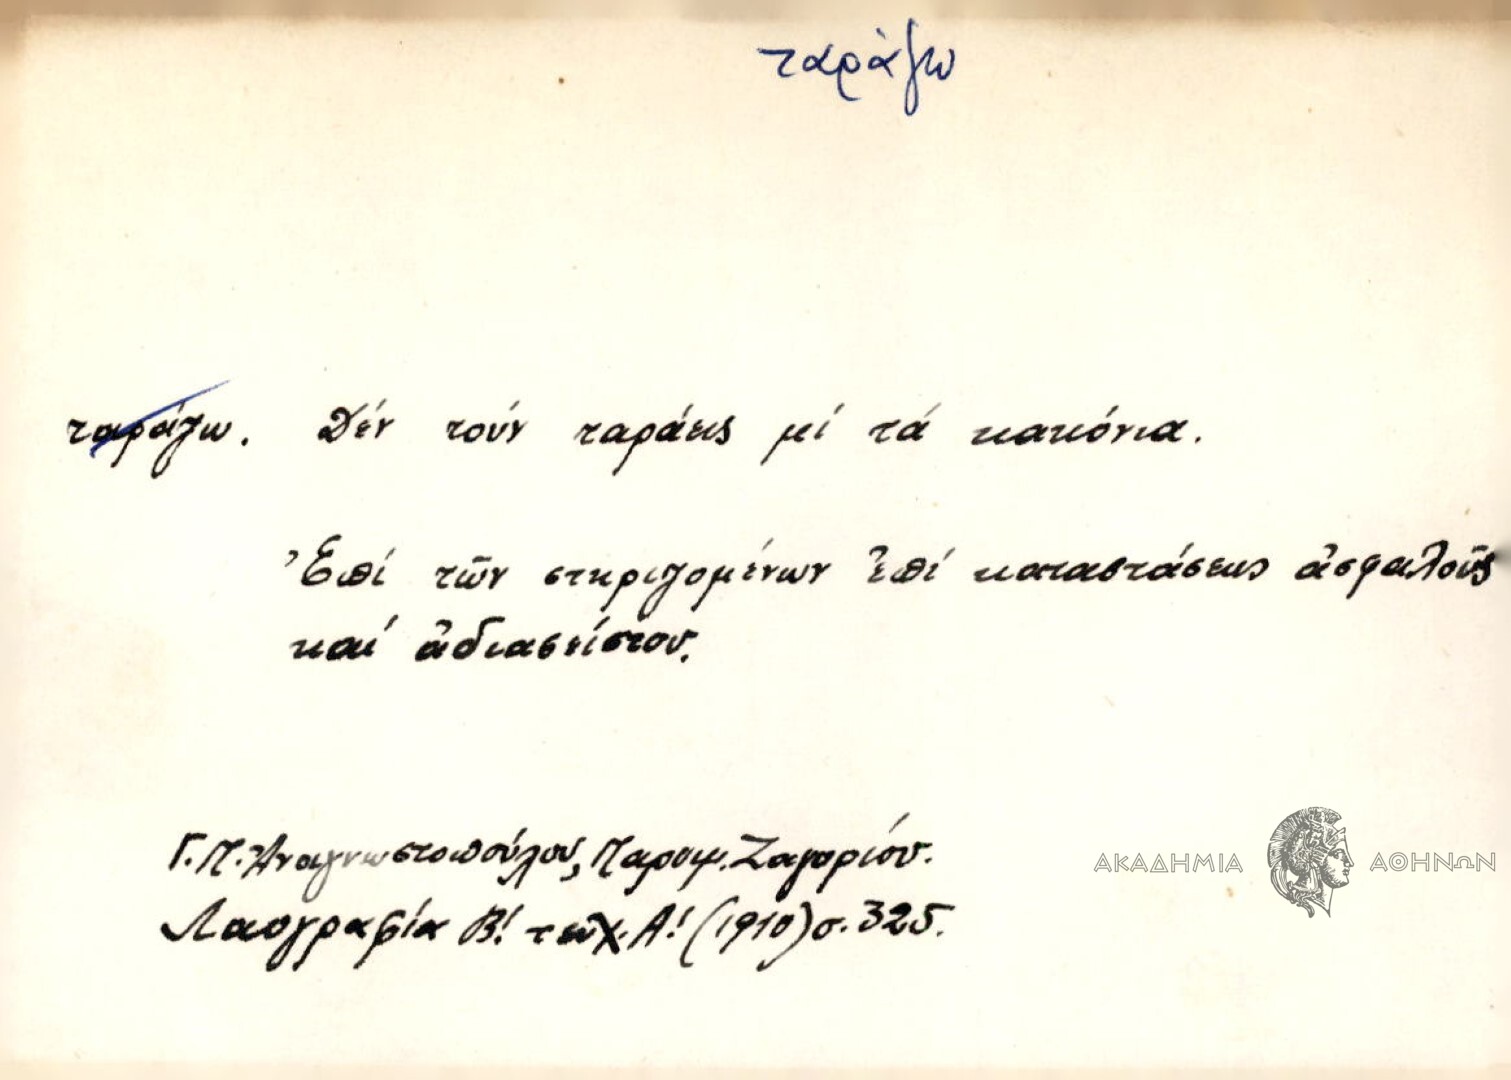 ταράζω
ταράζω. Δέν τούν ταράεις μί τά κακόνια.
Ἐπί τῶν στηριζομένων ἐπί καταστάσεως ἀσφαλοῦς
καί ἀδιασείστου.
Γ. Π. Ἀναγνωστοπούλου, Παροιμ. Ζαγορίου.
Λαογραφία Β! τευχ. Α! (1910) σ. 325.
ΑΚΑΔΗΜΙΑ ΑΘΗΝΩΝ